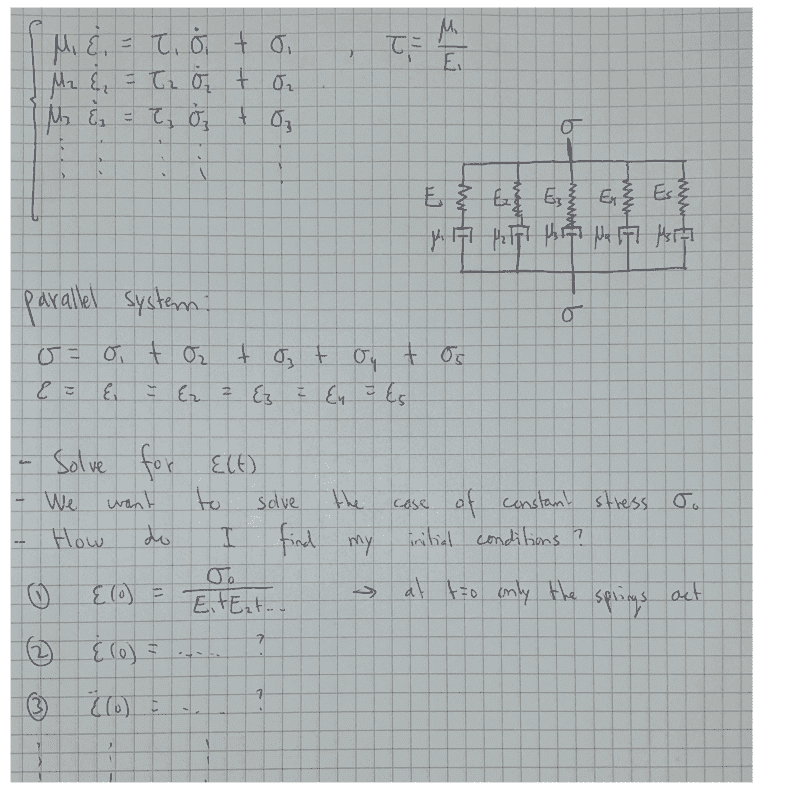 μ₁ ε̇₁ = τ₁ σ̇₁ + σ₁ , τ₁ = μ₁/E₁
μ₂ ε̇₂ = τ₂ σ̇₂ + σ₂
μ₃ ε̇₃ = τ₃ σ̇₃ + σ₃
⋮ ⋮ ⋮ ⋮ ⋮
σ
E₁ E₂ E₃ E₄ E₅
μ₁ μ₂ μ₃ μ₄ μ₅
σ
parallel system:
σ = σ₁ + σ₂ + σ₃ + σ₄ + σ₅
ε = ε₁ = ε₂ = ε₃ = ε₄ = ε₅
- Solve for ε(t)
- We want to solve the case of constant stress σ₀
- How do I find my initial conditions?
① ε(0) = σ₀/(E₁+E₂+... → at t=0 only the springs act
② ε̇(0) = ..... ?
③ ε̈(0) = ... ?
⋮ ⋮ ⋮